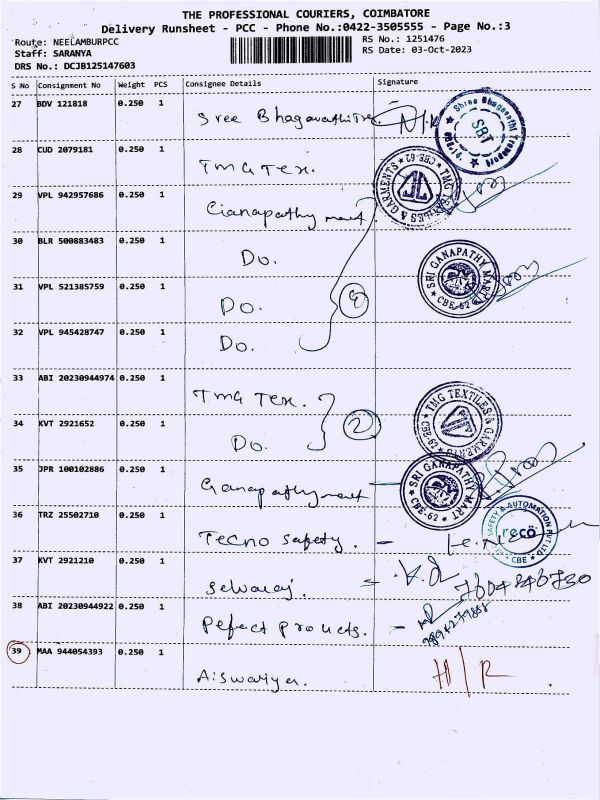 THE PROFESSIONAL COURIERS, COIMBATORE
Delivery Runsheet - PCC - Phone No.:0422-3505555 - Page No.:3
Route: NEELAMBURPCC
RS No.: 1251476
Staff: SARANYA
RS Date: 03-Oct-2023
DRS No.: DCJB125147603
S No Consignment No Weight PCS Consignee Details Signature
27 BDV 121818 0.250 1
Sree Bhagavathi
Shree Bhagavathi Transport SBT
28 CUD 2079181 0.250 1
TMG Tex.
TMG TEXTILES & GARMENTS CBE-62
29 VPL 942957686 0.250 1
Ganapathy mart
30 BLR 500883483 0.250 1
Do.
SRI GANAPATHY MART CBE-62
31 VPL 521385759 0.250 1
Do. 4
32 VPL 945428747 0.250 1
Do.
33 ABI 20230944974 0.250 1
TMG Tex.
TMG TEXTILES & GARMENTS CBE-62
34 KVT 2921652 0.250 1
Do. 2
35 JPR 100102886 0.250 1
Ganapathy mart
SRI GANAPATHY MART CBE-62
36 TRZ 25502710 0.250 1
Tecno Safety. -
SAFETY & AUTOMATION PVT LTD reco CBE
37 KVT 2921210 0.250 1
Selvaraj. =
38 ABI 20230944922 0.250 1
Pefect Products. -
39 MAA 944054393 0.250 1
Aiswariya. H/R